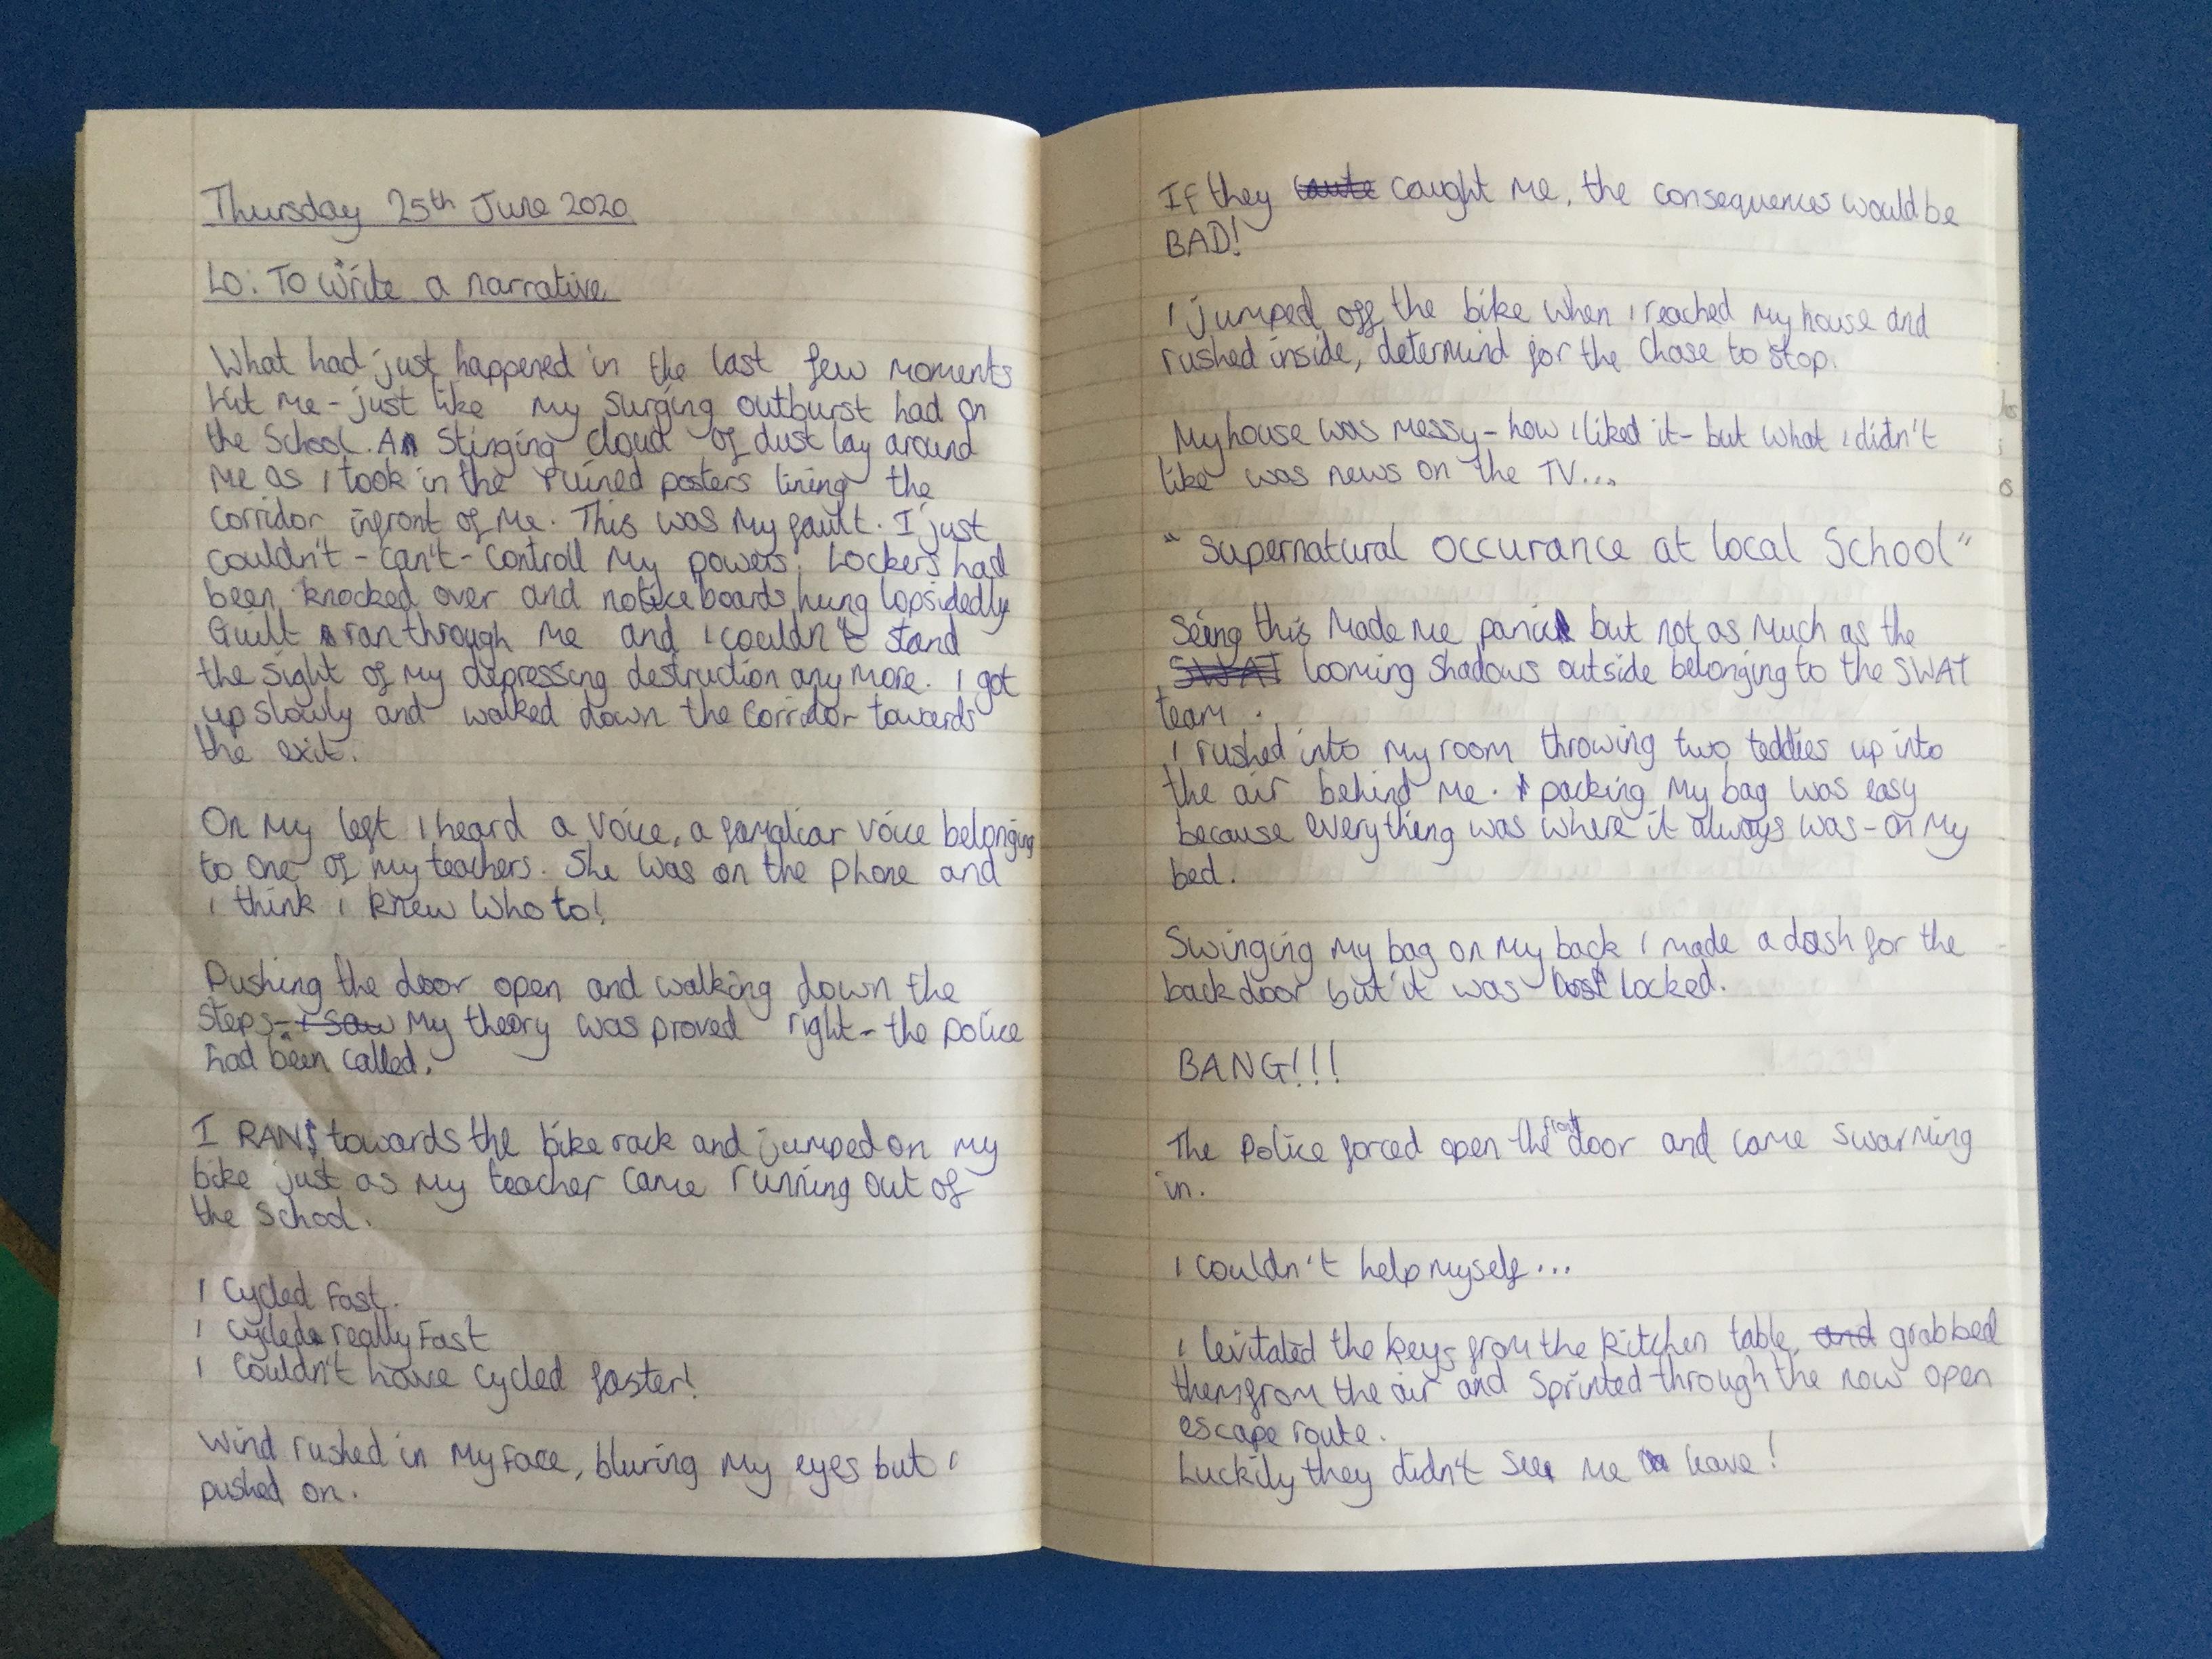 Thursday 25th June 2020
Lo: To write a narrative
What had just happened in the last few moments
hit me - just like my surging outburst had on
the School. A stinging cloud of dust lay around
me as I took in the ruined posters lining the
corridor infront of me. This was my fault. I just
couldn't - can't - controll my powers. Lockers had
been knocked over and notice boards hung lopsidedly
Guilt ran through me and I couldn't stand
the sight of my depressing destruction any more. I got
up slowly and walked down the corridor towards
the exit.
On my left I heard a voice, a familiar voice belonging
to one of my teachers. She was on the phone and
I think I knew who to!
Pushing the door open and walking down the
steps - I saw my theory was proved right - the police
had been called.
I RAN towards the bike rack and jumped on my
bike just as my teacher came running out of
the school.
I cycled fast.
I cycled really fast
I couldn't have cycled faster!
Wind rushed in my face, bluring my eyes but I
pushed on.
If they caute caught me, the consequences would be
BAD!
I jumped off the bike when I reached my house and
rushed inside, determind for the chase to stop.
My house was messy - how I liked it - but what I didn't
like was news on the TV...
"Supernatural occurance at local School"
Seeing this made me panic but not as much as the
SWAT looming shadows outside belonging to the SWAT
team.
I rushed into my room throwing two teddies up into
the air behind me. packing my bag was easy
because everything was where it always was - on my
bed.
Swinging my bag on my back I made a dash for the
back door but it was locked.
BANG!!!
The police forced open the front door and came swarming
in.
I couldn't help myself...
I levitated the keys from the kitchen table, and grabbed
them from the air and sprinted through the now open
escape route.
Luckily they didn't see me leave!